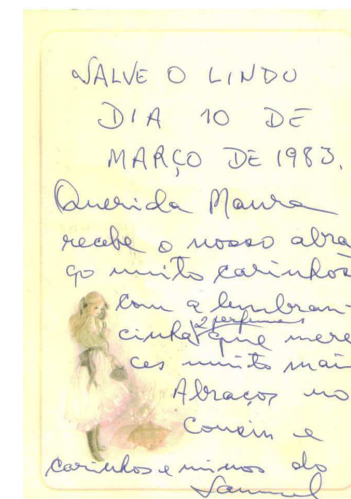 SALVE O LINDO
DIA 10 DE
MARÇO DE 1983.
Querida Maura
recebe o nosso abra
ço muito carinhos
com a lembran-
cinha 2 perfumes que mere
ces muito mai
Abraços no
e
carinhos e mimos do
Samuel